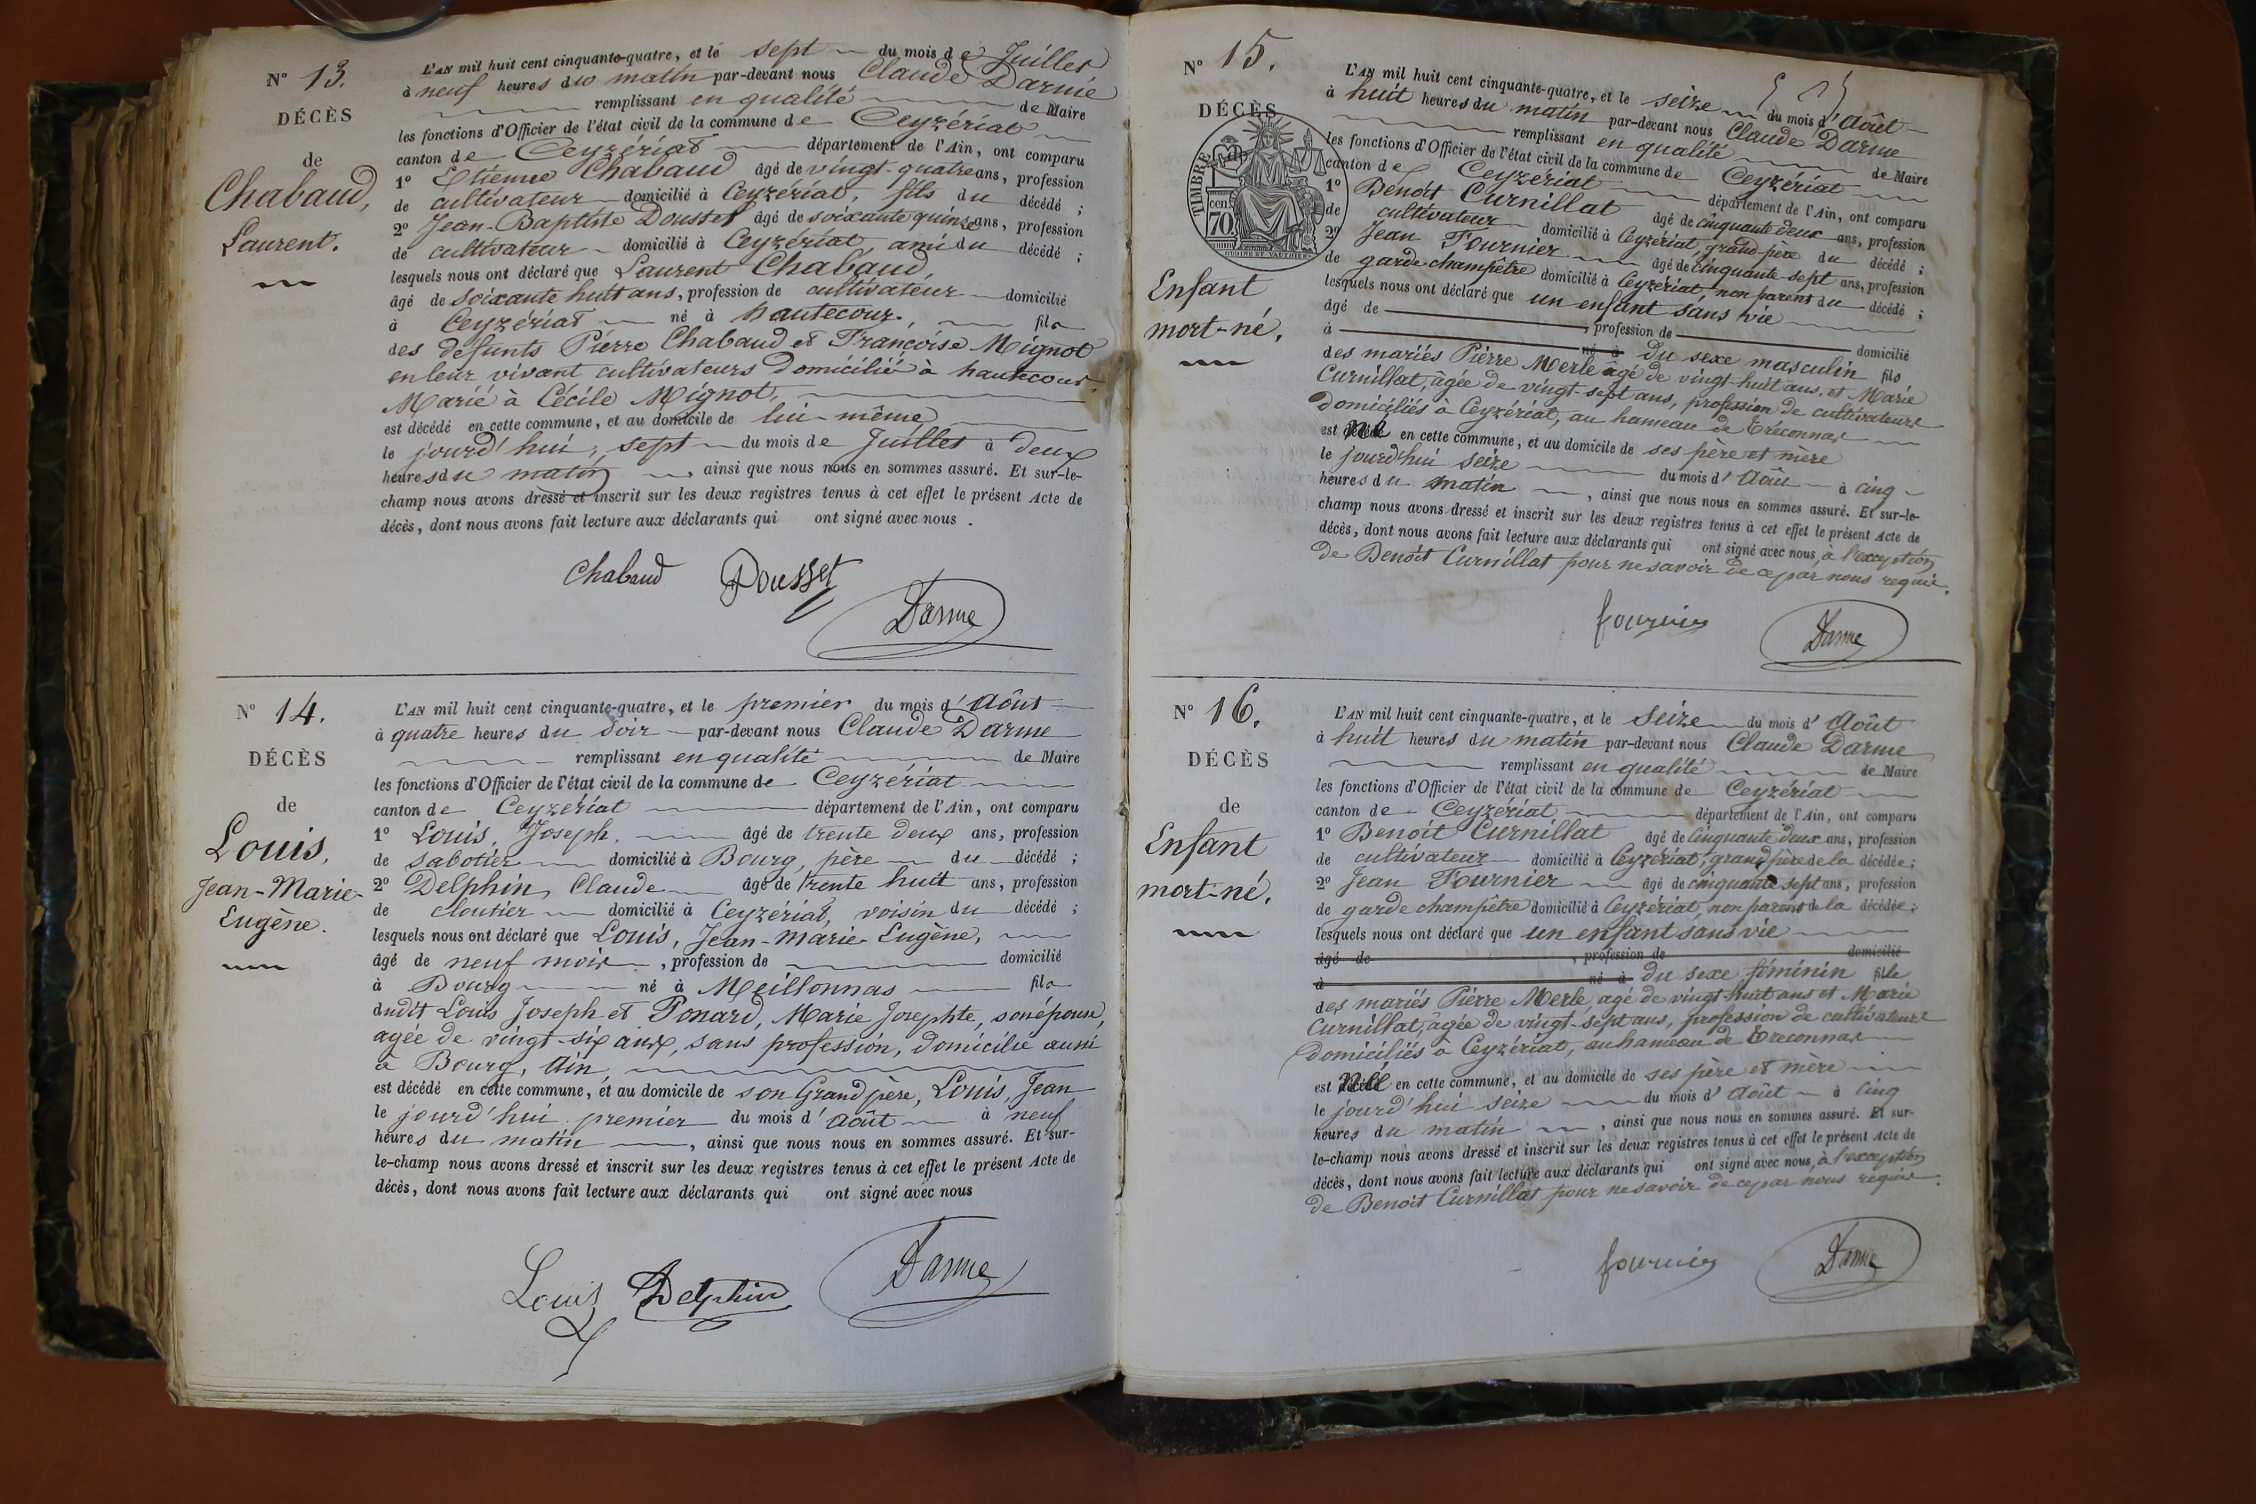 N° 13.
DÉCÈS
de
Chabaud,
Laurent.
L'AN mil huit cent cinquante-quatre, et le sept du mois de Juillet
à neuf heures du matin par-devant nous Claude Darme
remplissant en qualité de Maire
les fonctions d'Officier de l'état civil de la commune de Ceyzériat
canton de Ceyzériat département de l'Ain, ont comparu
1° Etienne Chabaud âgé de vingt-quatre ans, profession
de cultivateur domicilié à Ceyzériat, fils du décédé ;
2° Jean-Baptiste Dousset âgé de soixante quinze ans, profession
de cultivateur domicilié à Ceyzériat, ami du décédé ;
lesquels nous ont déclaré que Laurent Chabaud,
âgé de soixante huit ans, profession de cultivateur domicilié
à Ceyzériat né à hautecour. fils
des défunts Pierre Chabaud et Françoise Mignot
en leur vivant cultivateurs domicilié à hautecour.
Marié à Cécile Mignot,
est décédé en cette commune, et au domicile de lui-même
le jourd'hui, sept du mois de Juillet à deux
heures du matin , ainsi que nous nous en sommes assuré. Et sur-le-
champ nous avons dressé et inscrit sur les deux registres tenus à cet effet le présent Acte de
décès, dont nous avons fait lecture aux déclarants qui ont signé avec nous .
Chabaud Dousset
Darme
N° 14.
DÉCÈS
de
Louis,
Jean-Marie-
Eugène.
L'AN mil huit cent cinquante-quatre, et le premier du mois d'Août
à quatre heures du soir par-devant nous Claude Darme
remplissant en qualité de Maire
les fonctions d'Officier de l'état civil de la commune de Ceyzériat
canton de Ceyzériat département de l'Ain, ont comparu
1° Louis, Joseph, âgé de trente deux ans, profession
de sabotier domicilié à Bourg, père du décédé ;
2° Delphin, Claude âgé de trente huit ans, profession
de cloutier domicilié à Ceyzériat, voisin du décédé ;
lesquels nous ont déclaré que Louis, Jean-Marie-Eugène,
âgé de neuf mois , profession de domicilié
à Bourg né à Meillonnas fils
dudit Louis Joseph et Ponard, Marie Josephte, son épouse,
agée de vingt-six anx, sans profession, domicilié aussi
à Bourg, Ain,
est décédé en cette commune, et au domicile de son Grand père, Louis, Jean
le jourd'hui premier du mois d'Août à neuf
heures du matin , ainsi que nous nous en sommes assuré. Et sur-
le-champ nous avons dressé et inscrit sur les deux registres tenus à cet effet le présent Acte de
décès, dont nous avons fait lecture aux déclarants qui ont signé avec nous
Louis Delphin Darme
N° 15.
DÉCÈS
TIMBRE
70
cen
OUDINE ET VAUTHIER
Enfant
mort-né.
L'AN mil huit cent cinquante-quatre, et le seize du mois d'Août
à huit heures du matin par-devant nous Claude Darme
remplissant en qualité de Maire
les fonctions d'Officier de l'état civil de la commune de Ceyzériat
canton de Ceyzériat département de l'Ain, ont comparu
1° Benoit Curnillat âgé de cinquante deux ans, profession
de cultivateur domicilié à Ceyzériat, grand-père du décédé ;
2° Jean Fournier âgé de cinquante-sept ans, profession
de garde champêtre domicilié à Ceyzériat, non parent du décédé ;
lesquels nous ont déclaré que un enfant sans vie
âgé de , profession de domicilié
à né à du sexe masculin fils
des mariés Pierre Merle âgé de vingt-huit ans, et Marie
Curnillat, âgée de vingt-sept ans, profession de cultivateurs
domiciliés à Ceyzériat, au hameau de Treconnas
est né en cette commune, et au domicile de ses père et mère
le jourd'hui seize du mois d'Août à cinq
heures du matin , ainsi que nous nous en sommes assuré. Et sur-le-
champ nous avons dressé et inscrit sur les deux registres tenus à cet effet le présent Acte de
décès, dont nous avons fait lecture aux déclarants qui ont signé avec nous, à l'exception
de Benoit Curnillat pour ne savoir de ce par nous requis.
fournier Darme
N° 16.
DÉCÈS
de
Enfant
mort-né.
L'AN mil huit cent cinquante-quatre, et le Seize du mois d'Août
à huit heures du matin par-devant nous Claude Darme
remplissant en qualité de Maire
les fonctions d'Officier de l'état civil de la commune de Ceyzériat
canton de Ceyzériat département de l'Ain, ont comparu
1° Benoit Curnillat âgé de cinquante deux ans, profession
de cultivateur domicilié à Ceyzériat, grand père de la décédée ;
2° Jean Fournier âgé de cinquante sept ans, profession
de garde champêtre domicilié à Ceyzériat, non parent de la décédée ;
lesquels nous ont déclaré que un enfant sans vie
âgé de , profession de domicilié
à né à du sexe féminin fille
des mariés Pierre Merle, agé de vingt-huit ans et Marie
Curnillat, âgée de vingt-sept ans, profession de cultivateurs
domiciliés à Ceyzériat, au hameau de Treconnas
est né en cette commune, et au domicile de ses père et mère
le jourd'hui seize du mois d'Août à cinq
heures du matin , ainsi que nous nous en sommes assuré. Et sur-
le-champ nous avons dressé et inscrit sur les deux registres tenus à cet effet le présent Acte de
décès, dont nous avons fait lecture aux déclarants qui ont signé avec nous, à l'exception
de Benoit Curnillat pour ne savoir de ce par nous requis.
fournier Darme